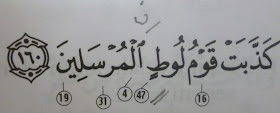 ن
كَذَّبَتْ قَوْمُ لُوطٍ الْمُرْسَلِينَ ١٦٠
16 47 4 31 19